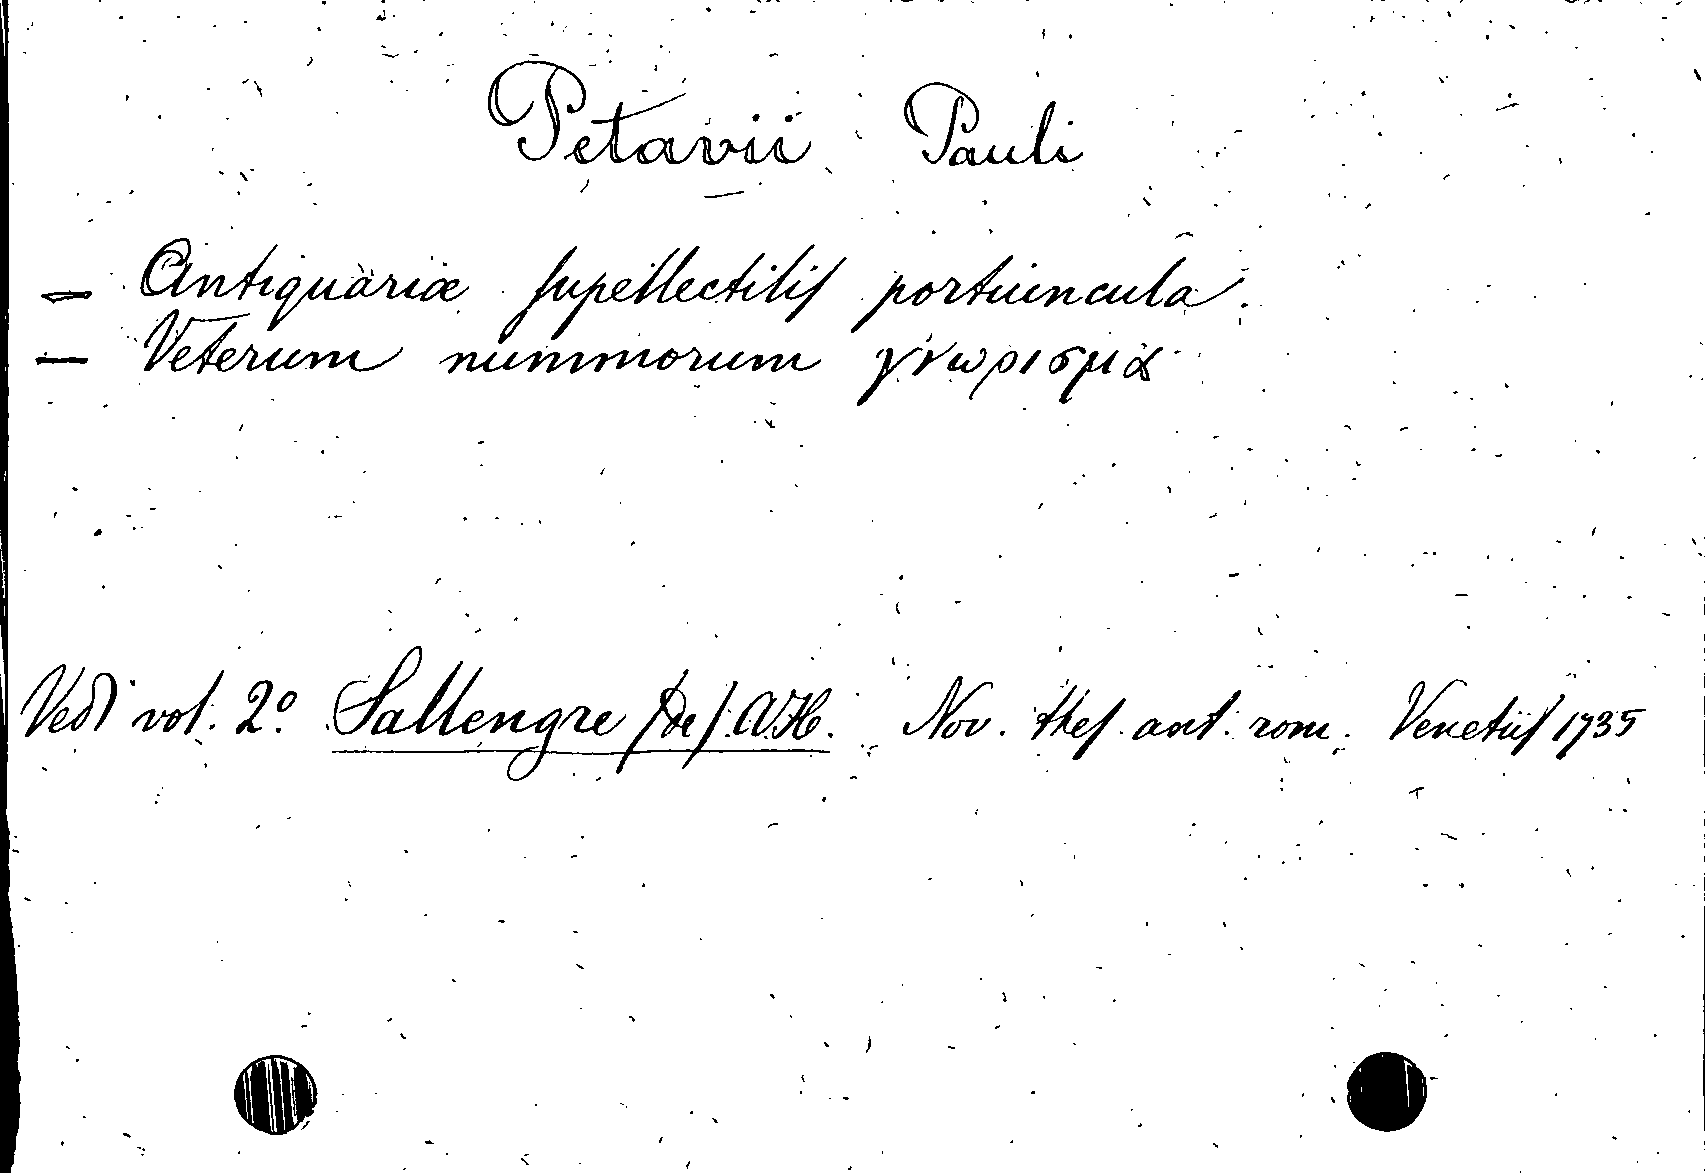 Petavii Pauli
– Antiquariæ supellectilis portiuncula.
– Veterum nummorum γνωρισμα
Vedi vol. 2º Sallengre (de) A.H. Nov. thes. ant. rom. Venetiis 1735